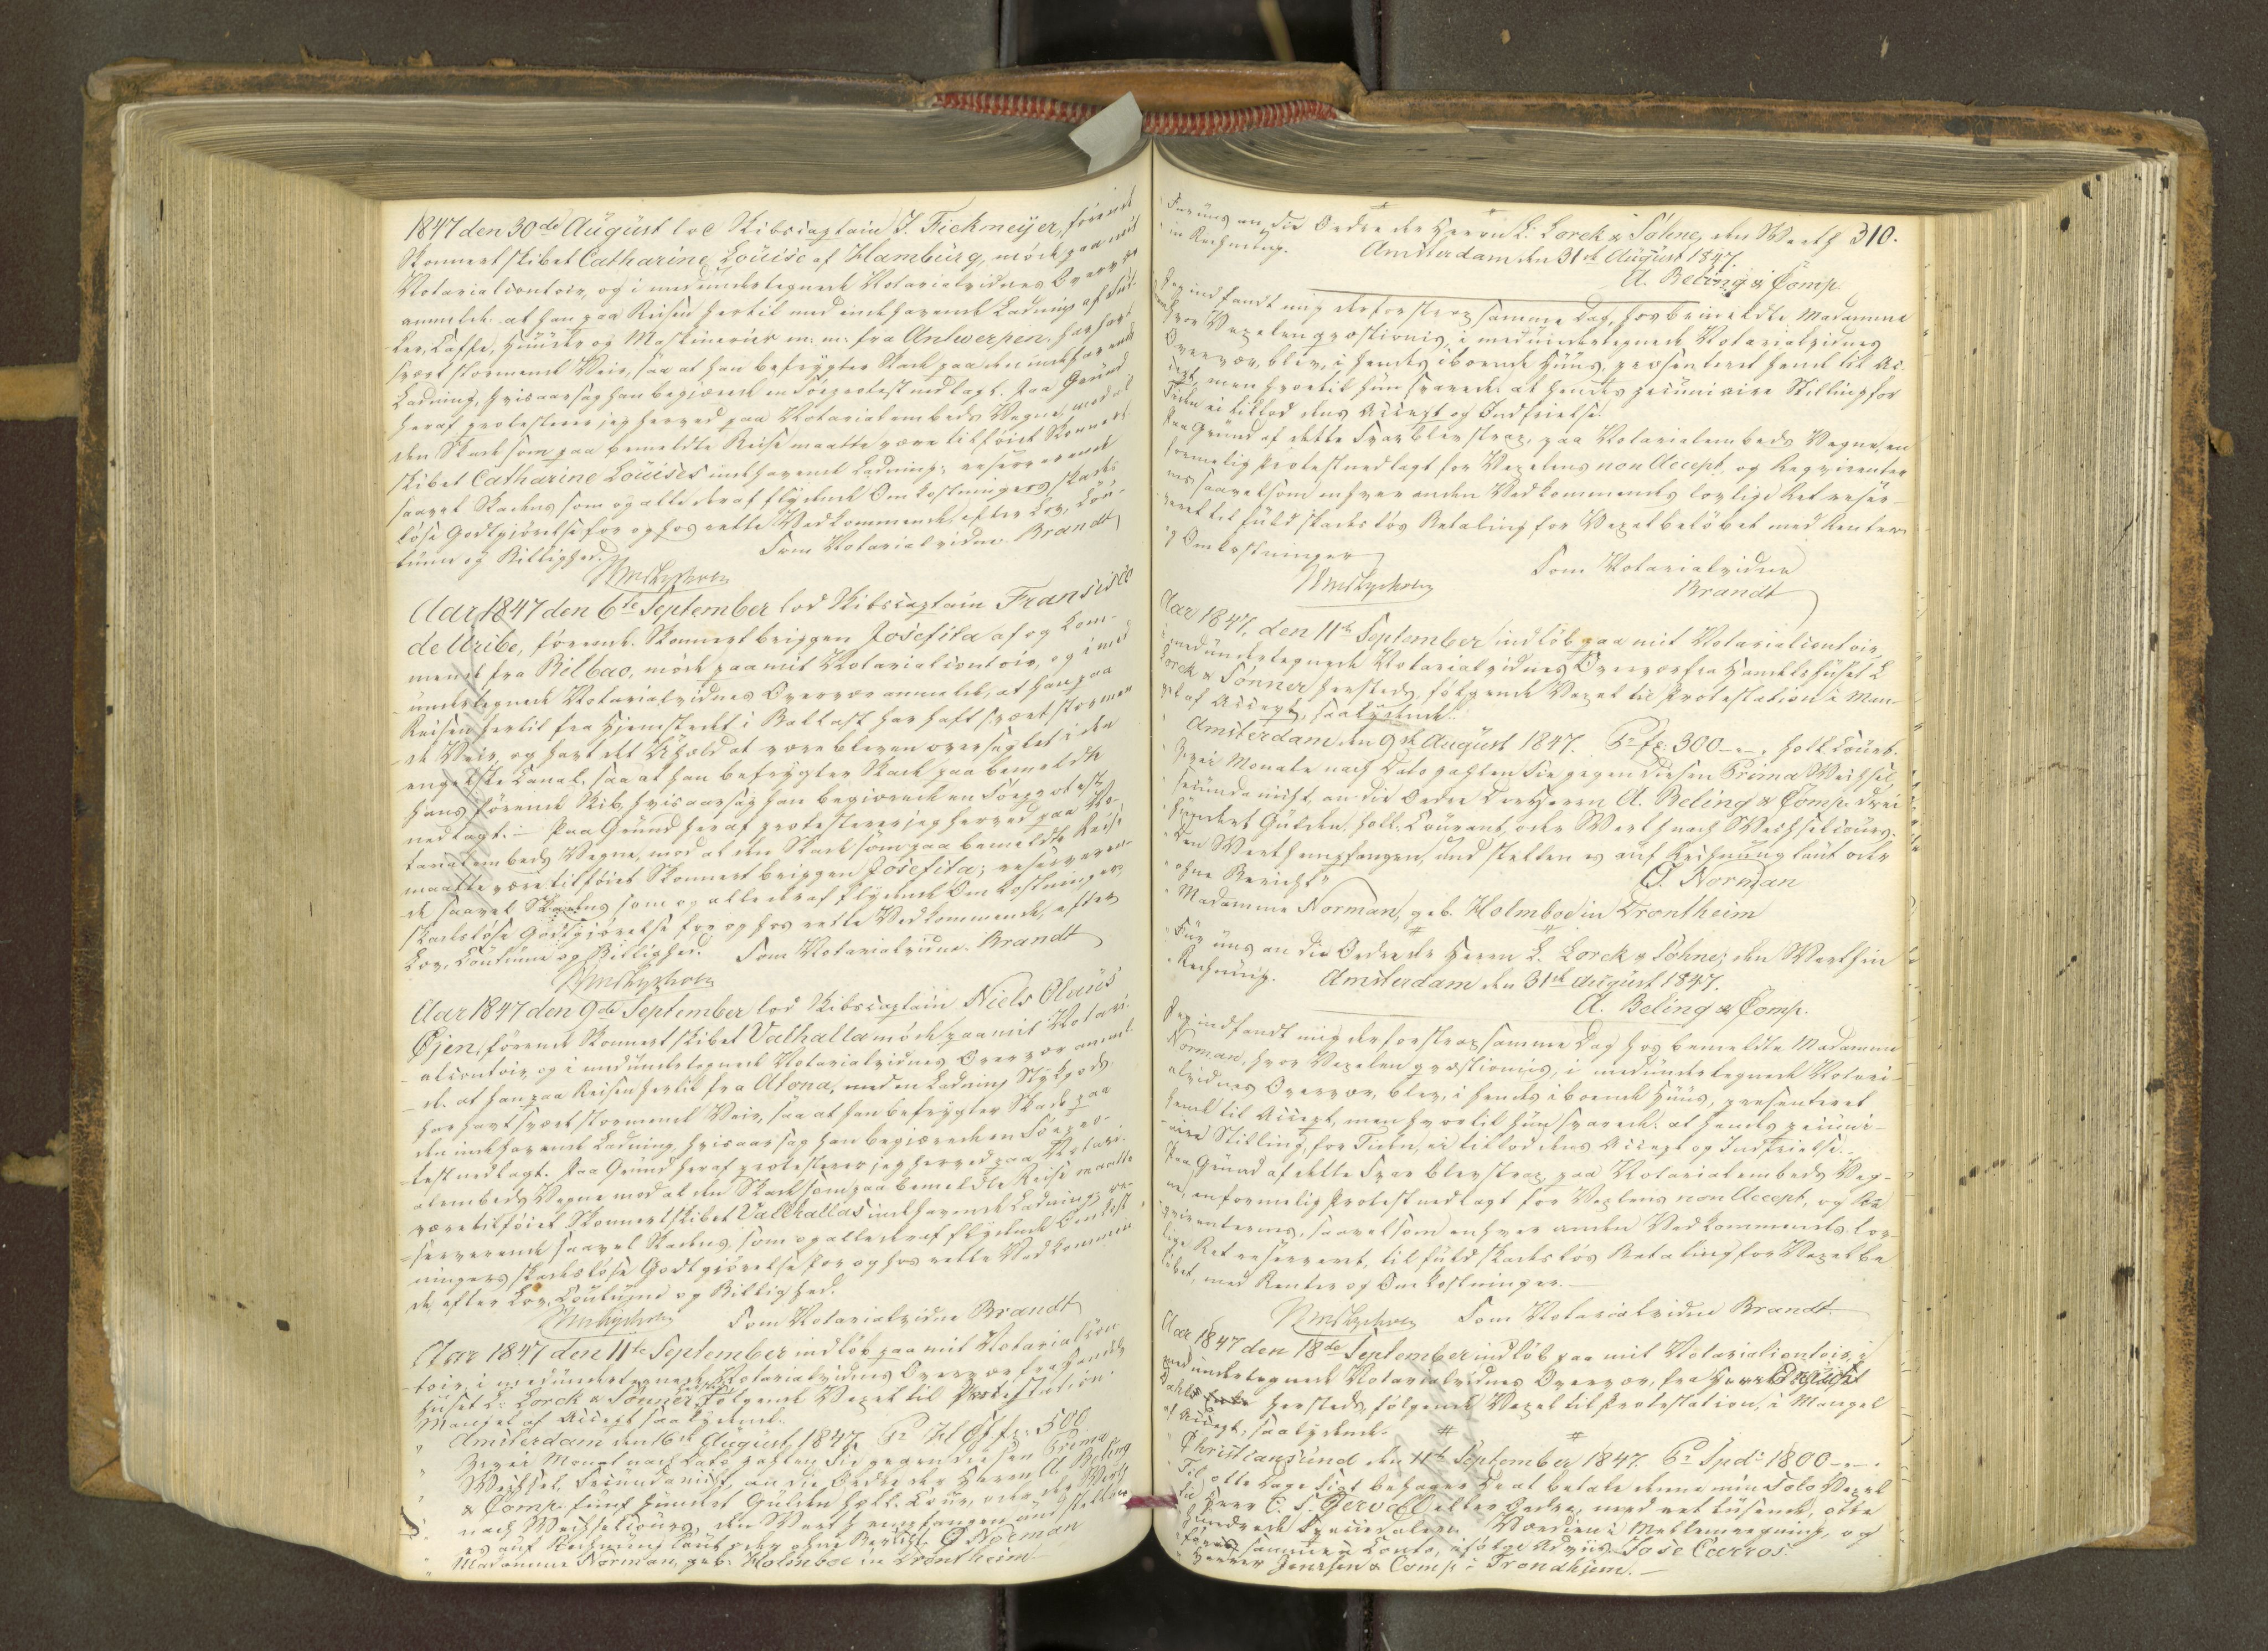 1847 den 30de August lod Skibscaptain J. Fickmeyer, førende
Skonnertskibet Catharine Louise af Hamburg, møde paa mit
Notarialcontoir, og i medundertegnede Notarialvidnes Overvær
anmelde: at han paa Reisen hertil med indehavende Ladning af
Caffe, Huder og Maskinerier m: m: fra Antwerpen, har havt
svært stormende Veir, saa at han befrygter Skade paa den indehavende
Ladning, hvisaarsag han begjærede en Søeprotest nedlagt. Paa Grund
heraf protesterer jeg herved paa Notarialembeds Vegne, mod al
den Skade som paa bemeldte Reise maatte være tilføiet Skonnert-
skibet Catharine Louises indehavende Ladning; reserverende
saavel Skadens som og alle deraf flydende Omkostningers skades-
løse Godtgjørelse for og hos rette Vedkommende efter Lov, Cou-
tume og Billighed. Som Notarialvidne Brandt
Aar 1847 den 6te September lod Skibscaptain Fransisco
de Uribe, førende Skonnertbriggen Josefita af og kom-
mende fra Bilbao, møde paa mit Notarialcontoir, og i med
undertegnede Notarialvidnes Overvær anmelde, at han paa
Reisen hertil fra Hjemstedet i Ballast har haft svært stormen
de Veir, og havt det Uheld at være bleven overseglet i den
engelske Canal, saa at han befrygter Skade paa bemeldte
hans førende Skib, hvisaarsag han begjærede en Søeprotest
nedlagt. - Paa Grund heraf protesterer jeg herved paa No-
tarialembeds Vegne, mod al den Skade som paa bemeldte Reise
maatte være tilføiet Skonnertbriggen Josefita; reserveren-
de saavel Skadens som og alle deraf flydende Omkostningers
skadesløse Godtgjørelse for og hos rette Vedkommende, efter
Lov, Coutume og Billighed. Som Notarialvidne Brandt
Aar 1847 den 9de September lod Skibscaptain Niels Claus
Øjen, førende Skonnertskibet Valhalla møde paa mit Notari-
alcontoir og i medundertegnede Notarialvidnes Overvær anmel-
de, at han paa Reisen hertil fra Altona, med en Ladning Stykgods
har havt svært stormende Veir, saa at han befrygter Skade paa
den indehavende Ladning, hvisaarsag han begjærede en Søepro-
test nedlagt. Paa Grund heraf protesterer jeg herved paa Notari-
alembeds Vegne mod al den Skade som paa bemeldte Reise maatte
være tilføiet Skonnertskibet Valhallas indehavende Ladning; re-
serverende saavel Skadens, som og alle deraf flydende Omkost
ningers skadesløse Godtgjørelse for og hos rette Vedkommen
de, efter Lov, Coutume og Billighed.
Som Notarialvidne Brandt
Aar 1847 den 11te September indløb paa mit Notarialcon
toir, i medundertegnede Notarialvidnes Overvær fra Handels
huset L: Lorck & Sønner følgende Vexel til Protestation i
Mangel af Accept saalydende.
" Amsterdam den 16de August 1847. Pr fr: 500
" Zwei Monat nach Dato zahlen Sie gegen diesen Prima
" Wechsel, Secunda nicht, an die Ordre der Herren A. Beling
" & Comp. fünf hundert Gulden holl. Cour, oder den Werth
" nach Wechselcours, den Werth empfangen und stellen
" es auf Rechnung laut oder ohne Bericht. O Norman
" Madamme Norman, geb: Holmboe in Drontheim
310.
Für uns an die Ordre der Herrn L: Lorck & Söhne, den Werth
in Rechnung. Amsterdam den 31te August 1847.
A. Beling & Comp.
Jeg indfandt mig derfor strax samme Dag, hos bemeldte Madamme
hvor Vexelen præstionis, i medundertegnede Notarialvidnes
Overvær, blev, i hendes iboende Huus, præsenteret hende til Ac-
cept, men hvortil hun svarede: at hendes pecuniaire Stilling for
Tiden ei tillod dens Accept og Indfrielse.
Paa Grund af dette Svar blev strax, paa Notarialembeds Vegne, en
formelig Protest nedlagt for Vexelens non Accept, og Reqvirenter
nes saavelsom enhver anden Vedkommendes lovlige Ret reser-
veret til fuld skadesløs Betaling for Vexelbeløbet med Renter
og Omkostninger
Som Notarialvidne
Brandt
Aar 1847, den 11te September indløb paa mit Notarialcontoir,
i medundertegnede Notarialvidnes Overvær fra Handelshuset L
Lorck & Sønner hersteds, følgende Vexel til Protestation i Man-
gel af Accept, saalydende.
" Amsterdam den 9de August 1847. Pr fr: 300 - " - " holl. Cour.
" Zwei Monate nach Dato zahlen Sie gegen diesen Prima Wechsel
" Secunda nicht, an die Ordre der Herren A. Beling & Comp. drei
" hundert Gulden, holl. Courant, oder Werth nach Wechselcours.
" Den Werth empfangen, und stellen es auf Rechnung laut oder
" ohne Bericht"
O. Norman
" Madamme Norman, geb. Holmboe in Drontheim
" Für uns an die Ordre der Herrn L. Lorck & Söhne; den Werth in
" Rechnung. Amsterdam den 31te August 1847.
A. Beling & Comp.
Jeg indfandt mig derfor strax samme Dag hos bemeldte Madamme
Norman, hvor Vexelen præstionis, i medundertegnede Notari-
alvidnes Overvær, blev, i hendes iboende Huus, præsenteret
hende til Accept, men hvortil hun svarede: at hendes pecuni-
aire Stilling, for Tiden, ei tillod dens Accept og Indfrielse. -
Paa Grund af dette Svar blev strax, paa Notarialembeds Veg-
ne, en formelig Protest nedlagt for Vexlens non Accept, og Re
qvirenternes, saavelsom enhver anden Vedkommendes lov-
lige Ret reserveret, til fuld skadesløs Betaling for Vexelbe
løbet, med Renter og Omkostninger. -
Som Notarialvidne Brandt.
Aar 1847 den 18de September indløb paa mit Notarialcontoir, i
medundertegnede Notarialvidnes Overvær, fra
hersteds, følgende Vexel til Protestation, i Mangel
af Accept, saalydende.
" Christiansund den 11te September 1847. Pr Spd: 1800 - " - "
" Otte Dage Sigt behager De at betale denne min Solo Vexel
" til Herr C. S. Gerval eller Ordre, med et tusende, otte
" hundrede Speciedaler. Værdien i Mellemregning, og
" føres samme i Conto, ifølge Adviis. Jose Carros.
" Herrer Jenssen & Comp: i Trondhjem. -